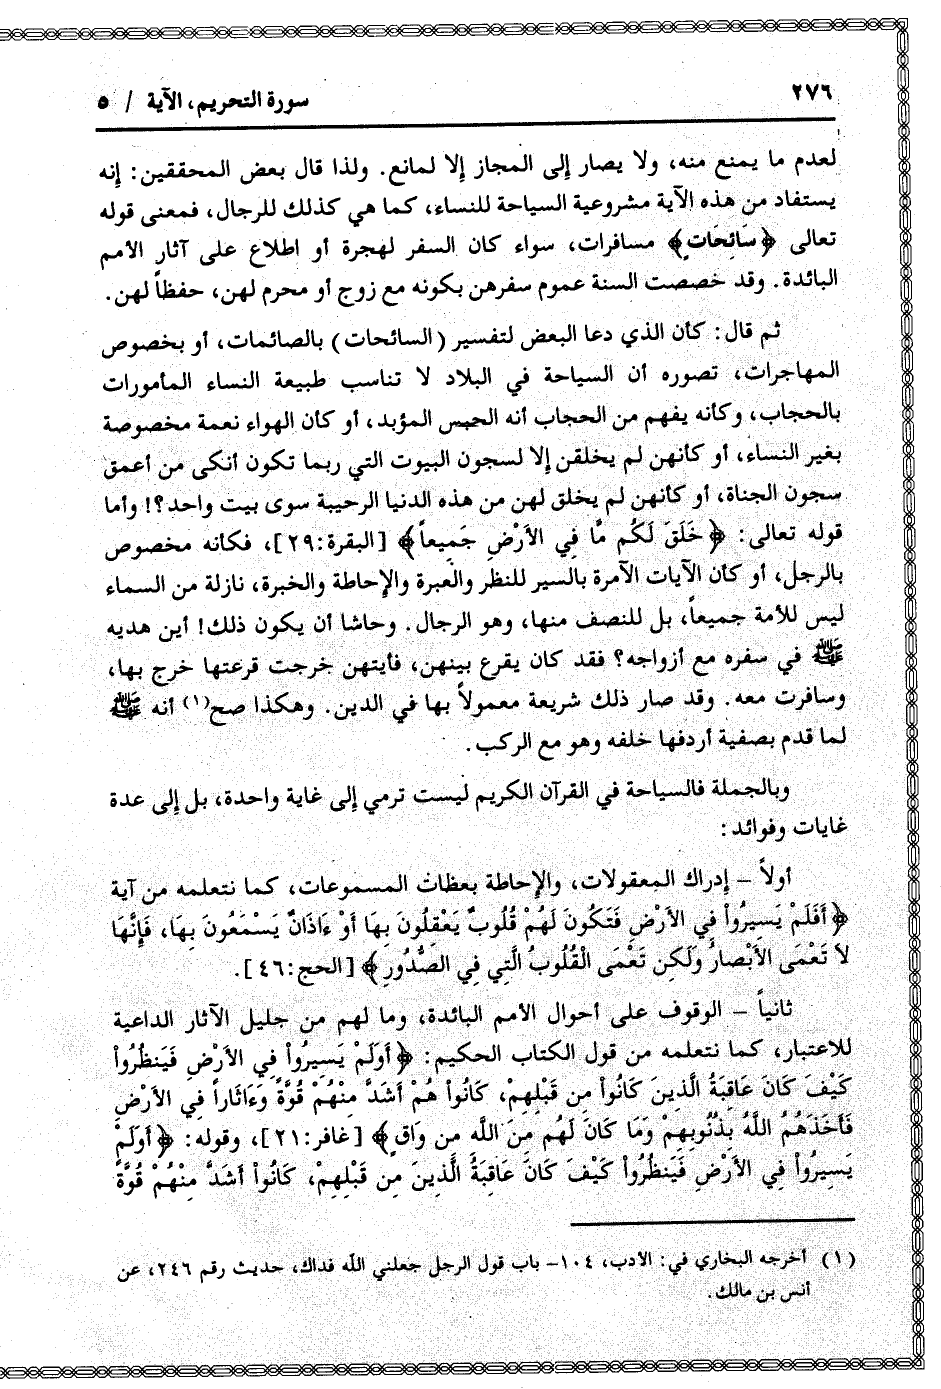 ٢٧٦ سورة التحريم، الآية / ٥
لعدم ما يمنع منه، ولا يصار إلى المجاز إلا لمانع. ولذا قال بعض المحققين: إنه
يستفاد من هذه الآية مشروعية السياحة للنساء، كما هي كذلك للرجال، فمعنى قوله
تعالى ﴿سَائِحَاتٍ﴾ مسافرات، سواء كان السفر لهجرة أو اطلاع على آثار الأمم
البائدة. وقد خصصت السنة عموم سفرهن بكونه مع زوج أو محرم لهن، حفظاً لهن.
ثم قال: كأن الذي دعا البعض لتفسير (السائحات) بالصائمات، أو بخصوص
المهاجرات، تصوره أن السياحة في البلاد لا تناسب طبيعة النساء المأمورات
بالحجاب، وكأنه يفهم من الحجاب أنه الحبس المؤبد، أو كأن الهواء نعمة مخصوصة
بغير النساء، أو كأنهن لم يخلقن إلا لسجون البيوت التي ربما تكون أنكى من أعمق
سجون الجناة، أو كأنهن لم يخلق لهن من هذه الدنيا الرحيبة سوى بيت واحد؟! وأما
قوله تعالى: ﴿خَلَقَ لَكُم مَّا فِي الأَرْضِ جَمِيعاً﴾ [البقرة:٢٩]، فكانه مخصوص
بالرجل، أو كأن الآيات الآمرة بالسير للنظر والعبرة والإحاطة والخبرة، نازلة من السماء
ليس للأمة جميعاً، بل للنصف منها، وهو الرجال. وحاشا أن يكون ذلك! أين هديه
ﷺ في سفره مع أزواجه؟ فقد كان يقرع بينهن، فأيتهن خرجت قرعتها خرج بها،
وسافرت معه. وقد صار ذلك شريعة معمولاً بها في الدين. وهكذا صح(١) أنه ﷺ
لما قدم بصفية أردفها خلفه وهو مع الركب.
وبالجملة فالسياحة في القرآن الكريم ليست ترمي إلى غاية واحدة، بل إلى عدة
غايات وفوائد:
أولاً – إدراك المعقولات، والإحاطة بعظات المسموعات، كما نتعلمه من آية
﴿أَفَلَمْ يَسِيرُواْ فِي الأَرْضِ فَتَكُونَ لَهُمْ قُلُوبٌ يَعْقِلُونَ بِهَا أَوْ ءَاذَانٌ يَسْمَعُونَ بِهَا، فَإِنَّهَا
لاَ تَعْمَى الأَبْصَارُ وَلَكِن تَعْمَى الْقُلُوبُ الَّتِي فِي الصُّدُورِ﴾ [الحج:٤٦].
ثانياً – الوقوف على أحوال الأمم البائدة، وما لهم من جليل الآثار الداعية
للاعتبار، كما نتعلمه من قول الكتاب الحكيم: ﴿أَوَلَمْ يَسيرُواْ فِي الأَرْضِ فَيَنظُرُواْ
كَيْفَ كَانَ عَاقِبَةُ الَّذِينَ كَانُواْ مِن قَبْلِهِمْ، كَانُواْ هُمْ أَشَدَّ مِنْهُمْ قُوَّةً وَءَاثَاراً فِي الأَرْضِ
فَأَخَذَهُمُ اللَّهُ بِذُنُوبِهِمْ وَمَا كَانَ لَهُم مِنَ اللَّه مِن وَاقٍ﴾ [غافر:٢١]، وقوله: ﴿أَوَلَمْ
يَسِيرُواْ فِي الأَرْضِ فَيَنظُرُواْ كَيْفَ كَانَ عَاقِبَةُ الَّذِينَ مِن قَبْلِهِمْ، كَانُواْ أَشَدَّ مِنْهُمْ قُوَّةً
(١) أخرجه البخاري في: الأدب، ١٠٤- باب قول الرجل جعلني الله فداك، حديث رقم ٢٤٦، عن
أنس بن مالك.